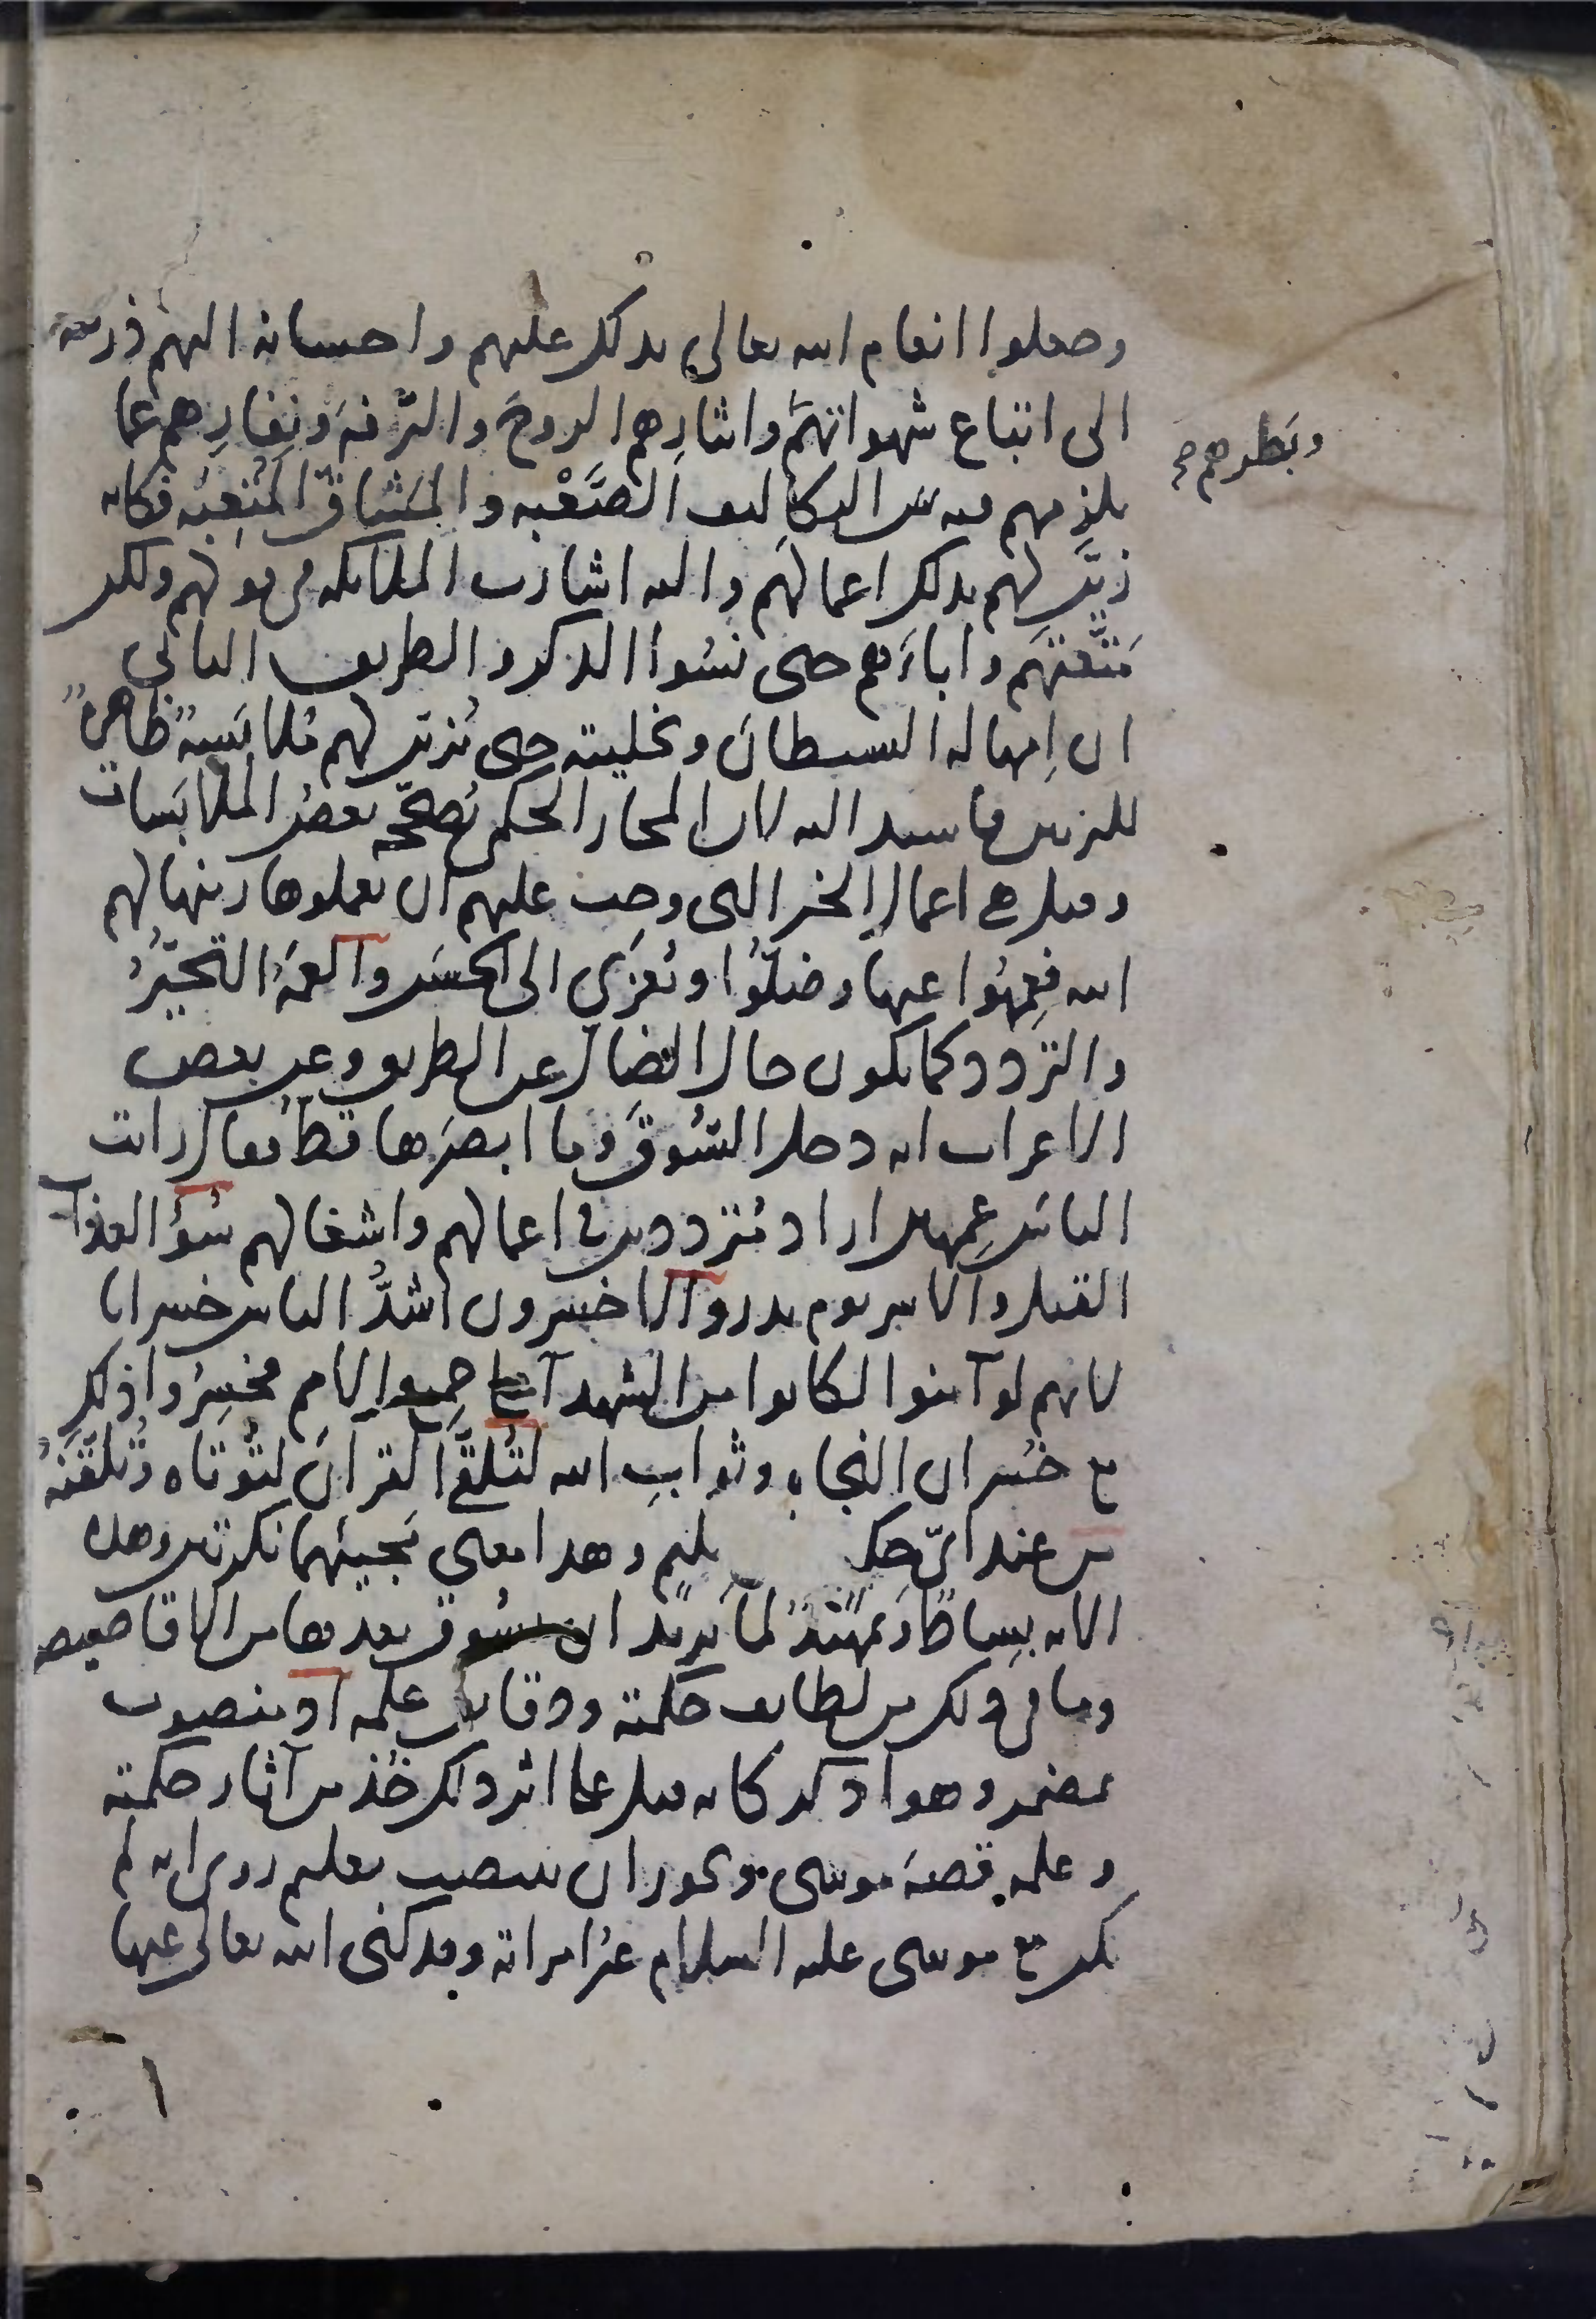 وجعلوا انعام الله تعالى بذلك عليهم واحسانه اليهم ذريعة
الى اتباع شهواتهم وايثارهم الروح والترفه ونفارهم عما
وبطرهم صح
يلزمهم فيه من التكاليف الصَّعْبه والمشاق المُتعِبَه فكانه
زيّن لهم بذلك اعمالهم واليه اشارت الملائكه في قولهم ولكن
مَتَّعْتَهم واباءَهم حتى نَسُوا الذكر والطريق الثاني
ان اِمهاله الشيطانَ وتخليته حتى يُزيّن لهم مُلابَسَةٌ ظاهرةٌ
للتزيين فاسند اليه لان المجاز الحكمي يُصحّحه بعضُ الملابَسات
وقيل هي اعمال الخير التي وجب عليهم ان يعملوها زينها لهم
الله فعَمِهُوا عنها وضلُّوا ويُعزَى الى الحسَن والعَمَهُ التحيّرُ
والتردد كما يكون حال الضال عن الطريق وعن بعض
الاعراب انه دخل السُّوقَ وما ابصرَها قطُّ فقال رايت
الناسَ عَمِهين اراد مُتردّدين في اعمالهم واشغالهم سُوءُ العذاب
القتل والاسر يوم بدر والاخسرون اشدُّ الناس خسرانا
لانهم لو آمنوا لكانوا من الشهدآء على جميع الامم فخسِرُوا ذلك
مع خُسران النجاه وثوابِ الله لَتُلَقَّى القرآنَ لتُوتاه وتُلَقَّنَهُ
من عند ايّ حكيم عليم وهذا معنى مَجيئهما نكرتين وهذه
الآيه بِساطٌ وتمهيدٌ لما يريد ان يسوق بعدها من الاقاصيص
وما في ذلك من لطايف حكمته ودقايق علمه اذ منصوب
بمضمر وهو اذكر كانه قيل على اثر ذلك خُذ من آثار حكمته
وعلمه قصةَ موسى ويجوز ان ينتصب بعليم روي انه لم
يكن مع موسى عليه السلام غيرُ امراته وقد كنى الله تعالى عنها